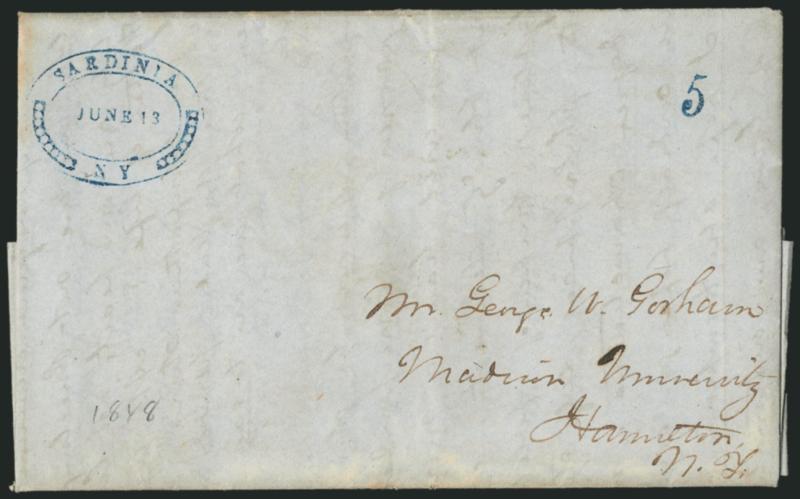 SARDINIA
JUNE 13
NY
5
Mr. George W. Gorham
Madison University
Hamilton,
N.Y.
1848